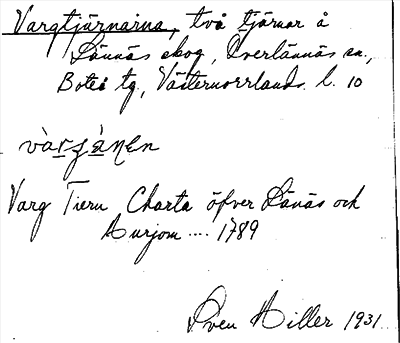 Vargtjärnarna, två tjärnar å
Lännäs skog, Överlännäs sn.,
Boteå tg, Västernorrlands l. 10
Varg Tiern Charta öfver Länäs och
.... 1789
Sven Hiller 1931